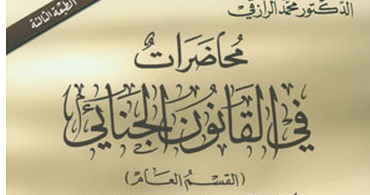 الطبعة الثالثة
الدكتور محمد الرازقي
محاضرات
في القانون الجنائي
(القسم العام)